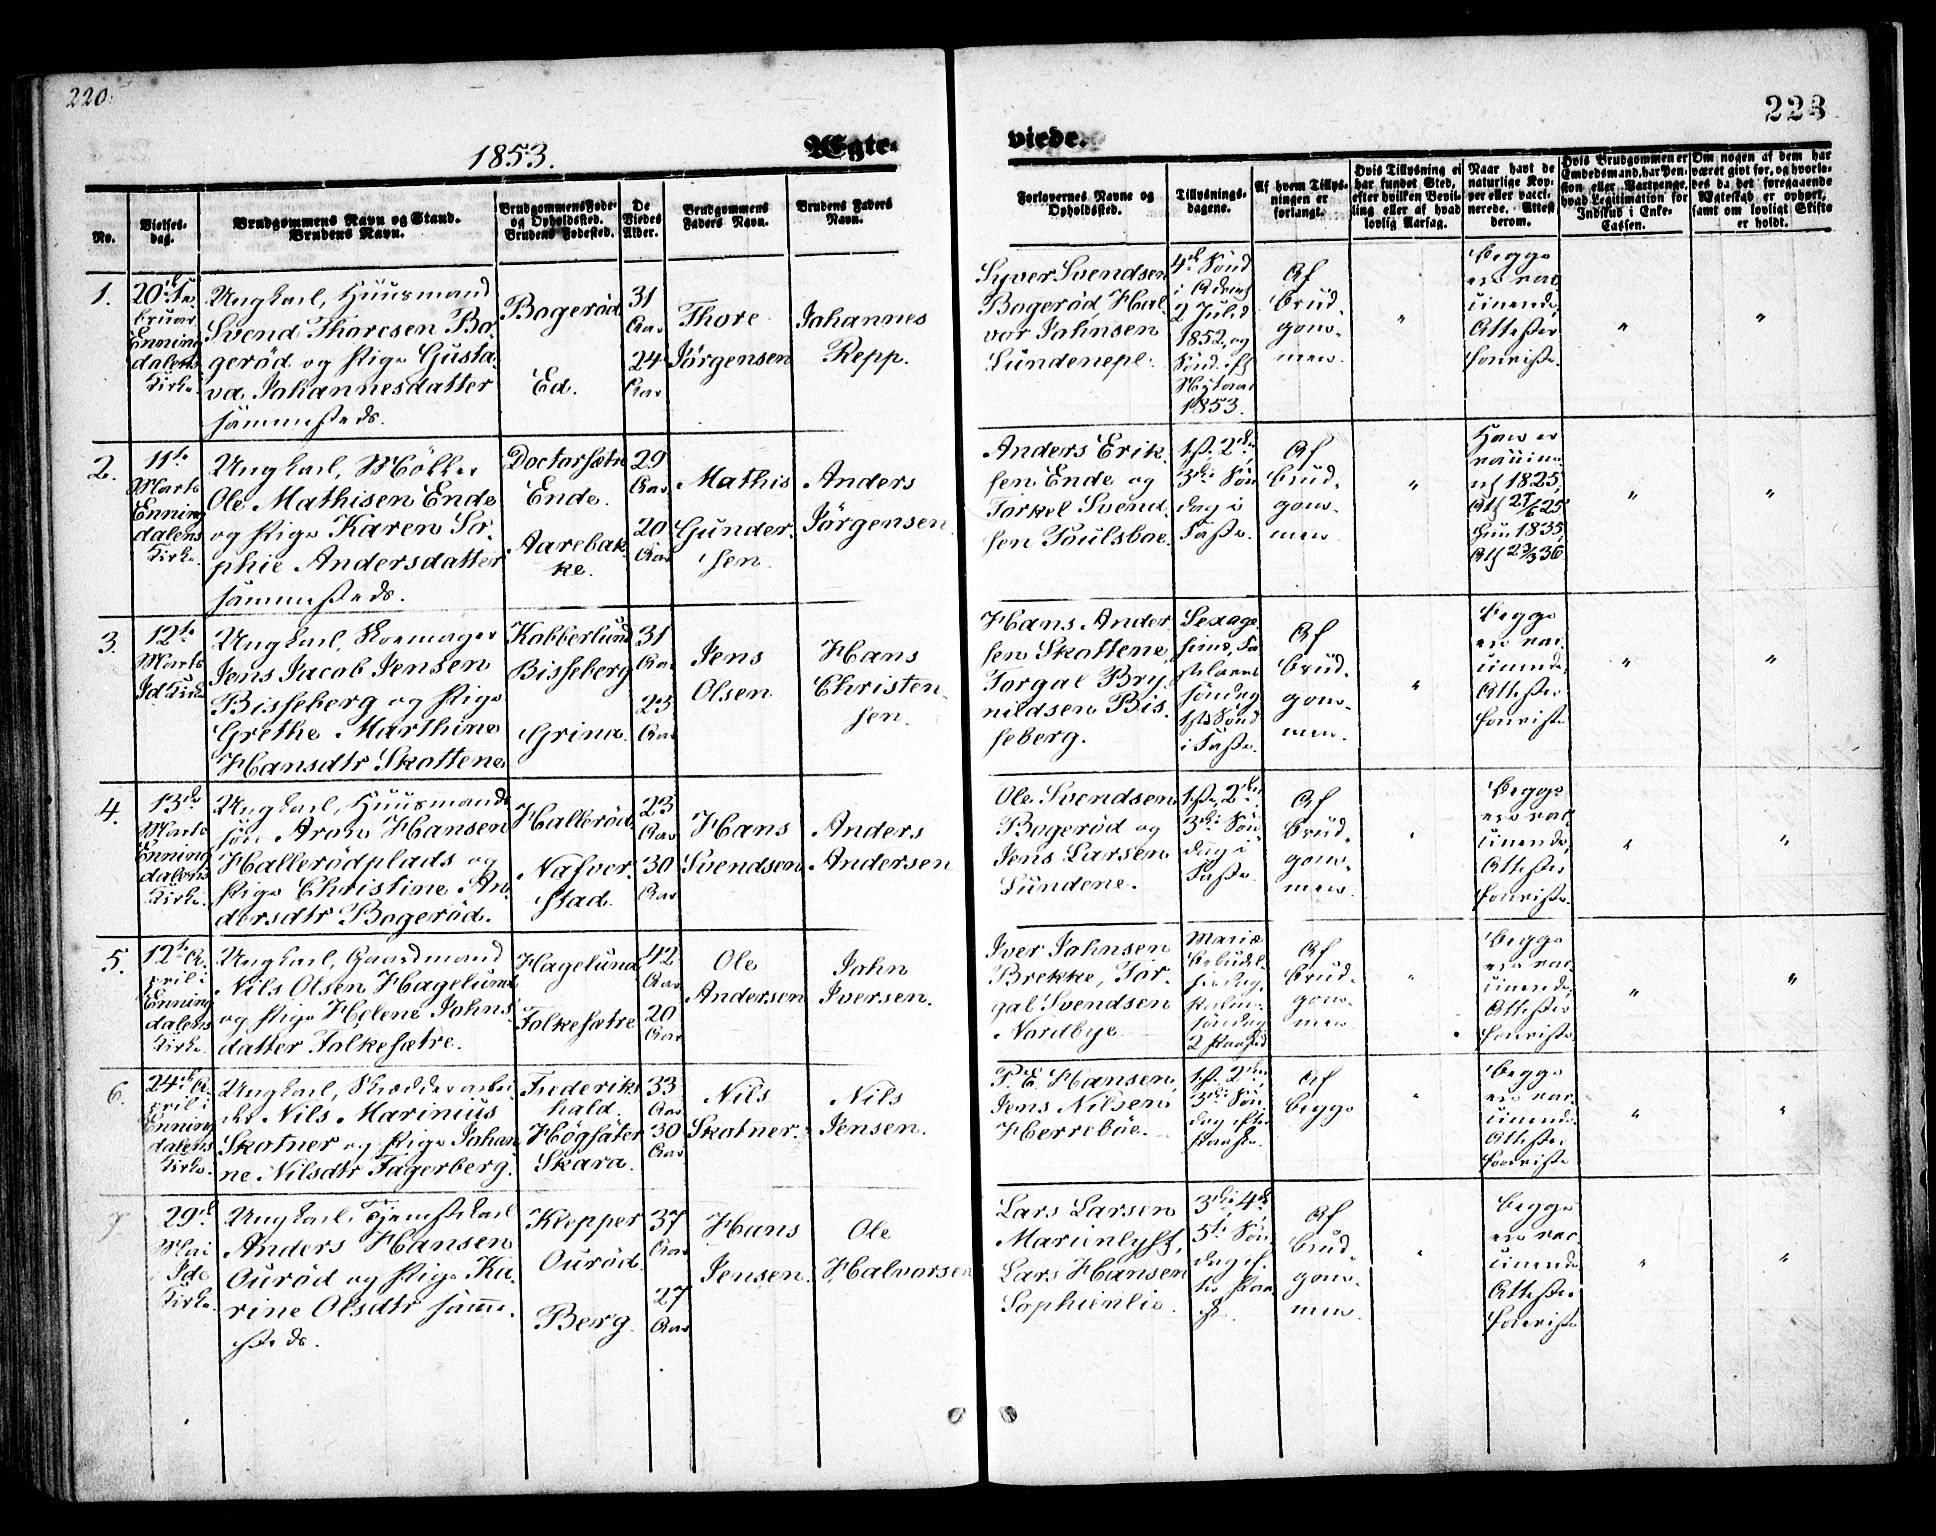 220.
223
1853.
Ægte-
viede.
No.
Vielses-
dag.
Brudgommens Navn og Stand.
Brudens Navn.
Brudgommens Føde-
og Opholdssted.
Brudens Fødested.
De
Viedes
Alder.
Brudgommens
Faders Navn.
Brudens Faders
Navn.
Forlovernes Navne og
Opholdssted.
Tillysnings-
dagene.
Af hvem Tillys-
ningen er
forlangt.
Hvis Tillysning ei
har fundet Sted,
efter hvilken Bevil-
ling eller af hvad
lovlig Aarsag.
Naar havt de
naturlige Kop-
per eller vacci-
nerede. Attest
derom.
Hvis Brudgommen er
Embedsmand, har Pen-
sion eller Vartpenge,
hvad Legitimation for
Indskud i Enke-
Cassen.
Om nogen af dem har
været givt før, og hvorle-
des da det foregaaende
Ægteskab er ophørt,
samt om lovligt Skifte
er holdt.
1.
20de Fe-
bruar
Enning-
dalens
Kirke
Ungkarl, Huusmand
Svend Thoresen Bo-
gerød og Pige Gusta-
va Johannesdatter
sammesteds.
Bogerød
Ed.
31
Aar
24
Aar
Thore
Jörgensen
Johannes
Repp.
Syver Svendsen
Bogeröd, Hal-
vor Johnsen
Lundenepl.
4de Sönd
i Advent
2 Juled
1852, og
Sönd. eft
Nytaar
1853.
Af
Brud-
gom-
men.
"
Begge
ere vac-
cinerede,
Attester
foreviste.
"
"
2.
11te
Marts
Enning
dalens
Kirke.
Ungkarl,
Ole Mathisen Ende
og Pige Karen So-
phie Andersdatter
sammesteds.
Doctorsætre
Ende.
Aarebak-
ke.
29
Aar
20
Aar
Mathis
Gunder-
sen.
Anders
Jörgensen
Anders Erik-
sen Ende og
Torkel Svend-
sen Poulsboe.
1ste, 2den
3die Sön-
dag i
Faste.
Af
Brud-
gom-
men
"
Ham er
vaccine-
ret 1825,
Att 27/6 25
Hun 1835,
Att 29/3 36
"
"
3.
12te
Marts
Id Kirke
Ungkarl, Skomager
Jens Jacob Jensen
Bisseberg og Pige
Grethe Marthine
Hansdtr Skottene
Kobberlund
Bisseberg
Grina.
31
Aar
23
Aar
Jens
Olsen
Hans
Christen-
sen.
Hans Ander
sen Skottene,
Torgal Bry-
nildsen Bis-
seberg.
Sexage-
sima, Fa-
stelavns
söndag
1ste Sönd
i Faste.
Af
Brud-
gom-
men.
"
Begge
ere vac-
cinerede,
Attester
foreviste.
"
"
4.
13de
Marts
Enning
dalens
Kirke.
Ungkarl, Huusmands
sön Aron Hansen
Halleröd­plads og
Pige Christine An-
dersdtr Bogeröd.
Halleröd.
Nafver-
stad.
23
Aar
30
Aar
Hans
Svendsen
Anders
Andersen
Ole Svendsen
Bogeröd og
Jens Larsen
Lundene.
1ste, 2den
3die Sön-
dag i
Faste.
Af
Brud-
gom-
men.
"
Begge
ere vac-
cinerede,
Attester
foreviste.
"
"
5.
12te A-
pril i
Enning
dalens
Kirke.
Ungkarl, Gaardmand
Nils Olsen Hagelund
og Pige Helene Johns-
datter Folkesætre.
Hagelund
Folkesætre
42
Aar
20
Aar
Ole
Andersen
John
Iversen.
Iver Johnsen
Brekke, Tor-
gal Svendsen
Nordbye.
Mariæ
Bebudel-
sesdag,
Palme-
söndag
2 Paaske
Af
Brud-
gom-
men
"
Begge
ere vac-
cinerede,
Attester
foreviste.
"
"
6.
24de A-
pril i
Enning
dalens
Kirke.
Ungkarl, Skrædderarbei-
der Nils Marinius
Skotner og Pige Johan
ne Nilsdtr Fagerberg.
Frederiks
hald.
Högsäter
Skara.
33
Aar
30
Aar
Nils
Skotner.
Nils
Jensen.
P. E. Hansen,
Jens Nilsen
Herreböe.
1ste, 2den
3die Sön-
dag efter
Paaske.
Af
Begge
"
Begge
ere vac-
cinerede
Attester
foreviste
"
"
7
29de
Mai
Ide
Kirke.
Ungkarl, Tjenestekarl
Anders Hansen
Ouröd og Pige Ka-
rine Olsdtr samme-
steds.
Klepper
Ouröd.
Berg.
37
Aar
27
Aar
Hans
Jensen.
Ole
Halvorsen
Lars Larsen
Marienlyst,
Lars Hansen
Sophienlie.
3die, 4de
5te Sön-
dag ef-
ter Paa-
ske.
Af
Brud-
gom-
men.
"
Begge
ere vac-
cinerede
Attester
foreviste
"
"